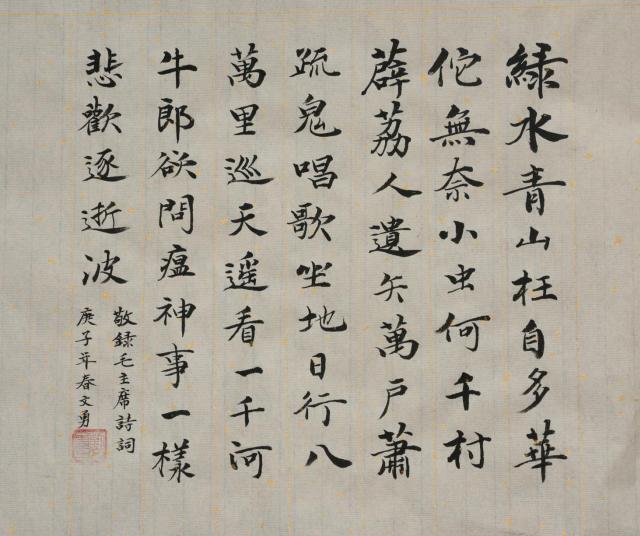 綠水青山枉自多華
佗無奈小虫何千村
薜荔人遺矢萬户蕭
疏鬼唱歌坐地日行八
萬里巡天遥看一千河
牛郎欲問瘟神事一樣
悲歡逐逝波
敬録毛主席詩詞
庚子年春文勇